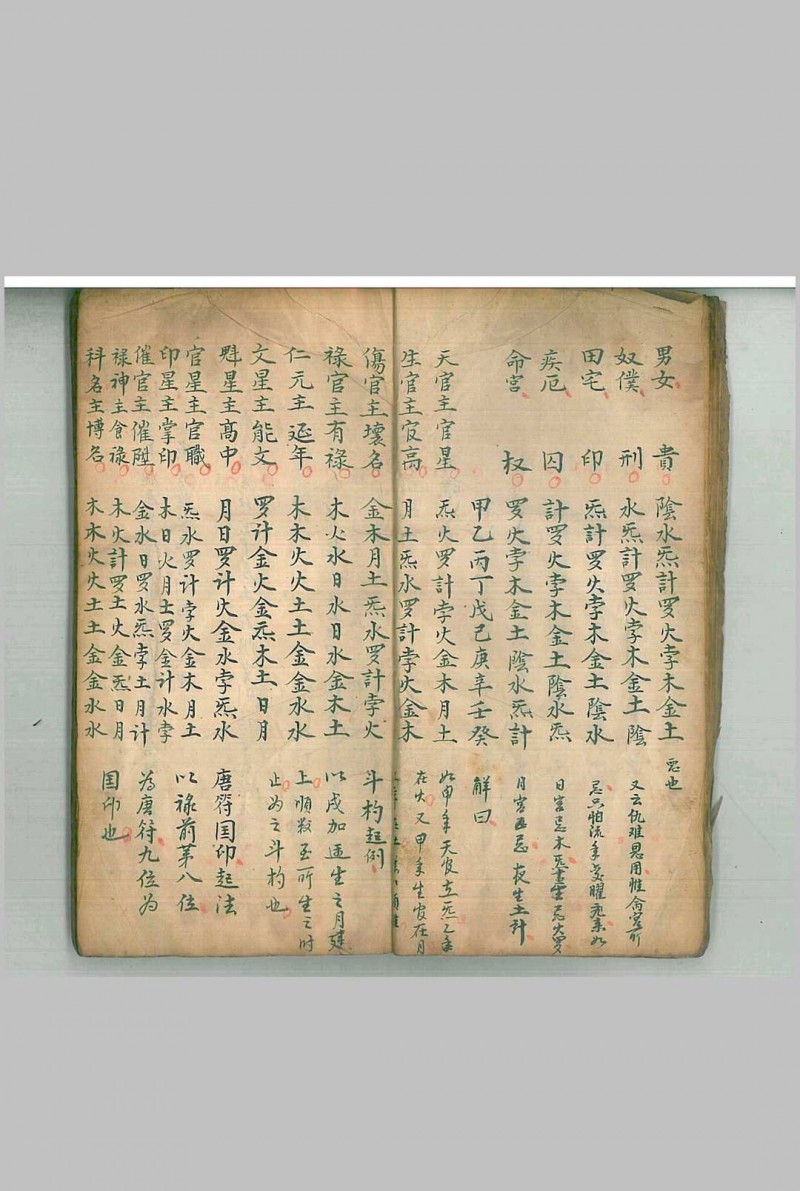 男女 貴 陰水炁計罗火孛木金土 忌也
奴僕 刑 水炁計罗火孛木金土陰 又云仇难恩用惟命宮所
田宅 印 炁計罗火孛木金土陰水 忌只怕流年
疾厄 囚 計罗火孛木金土陰水炁 日宮忌木炁晝生忌火罗
命宮 权 罗火孛木金土陰水炁計 月宮忌 夜生土計
甲乙丙丁戊己庚辛壬癸 解曰
天官主官星 炁火罗計孛火金木月土 如甲年天官在炁乙年
生官主官高 月土炁水罗計孛火金木 在火又甲年生官在月
傷官主壞名 金木月土炁水罗計孛火 斗杓起例
祿官主有祿 木火水日水日水金木土 以戌加逐生之月建
仁元主延年 木木火火土土金金水水 上順数至所生之时
文星主能文 罗计金火金炁木土日月 止为之斗杓也
魁星主高中 月日罗计火金水孛炁水 唐符国印起法
官星主官職 炁水罗计孛火金木月土 以祿前第八位
印星主掌印 木日火月土罗金计水孛
催官主催陞 金水日罗水炁孛土月计 為唐符九位为
祿神主食祿 木火計罗土火金炁日月
科名主博名 木木火火土土金金水水 国印也